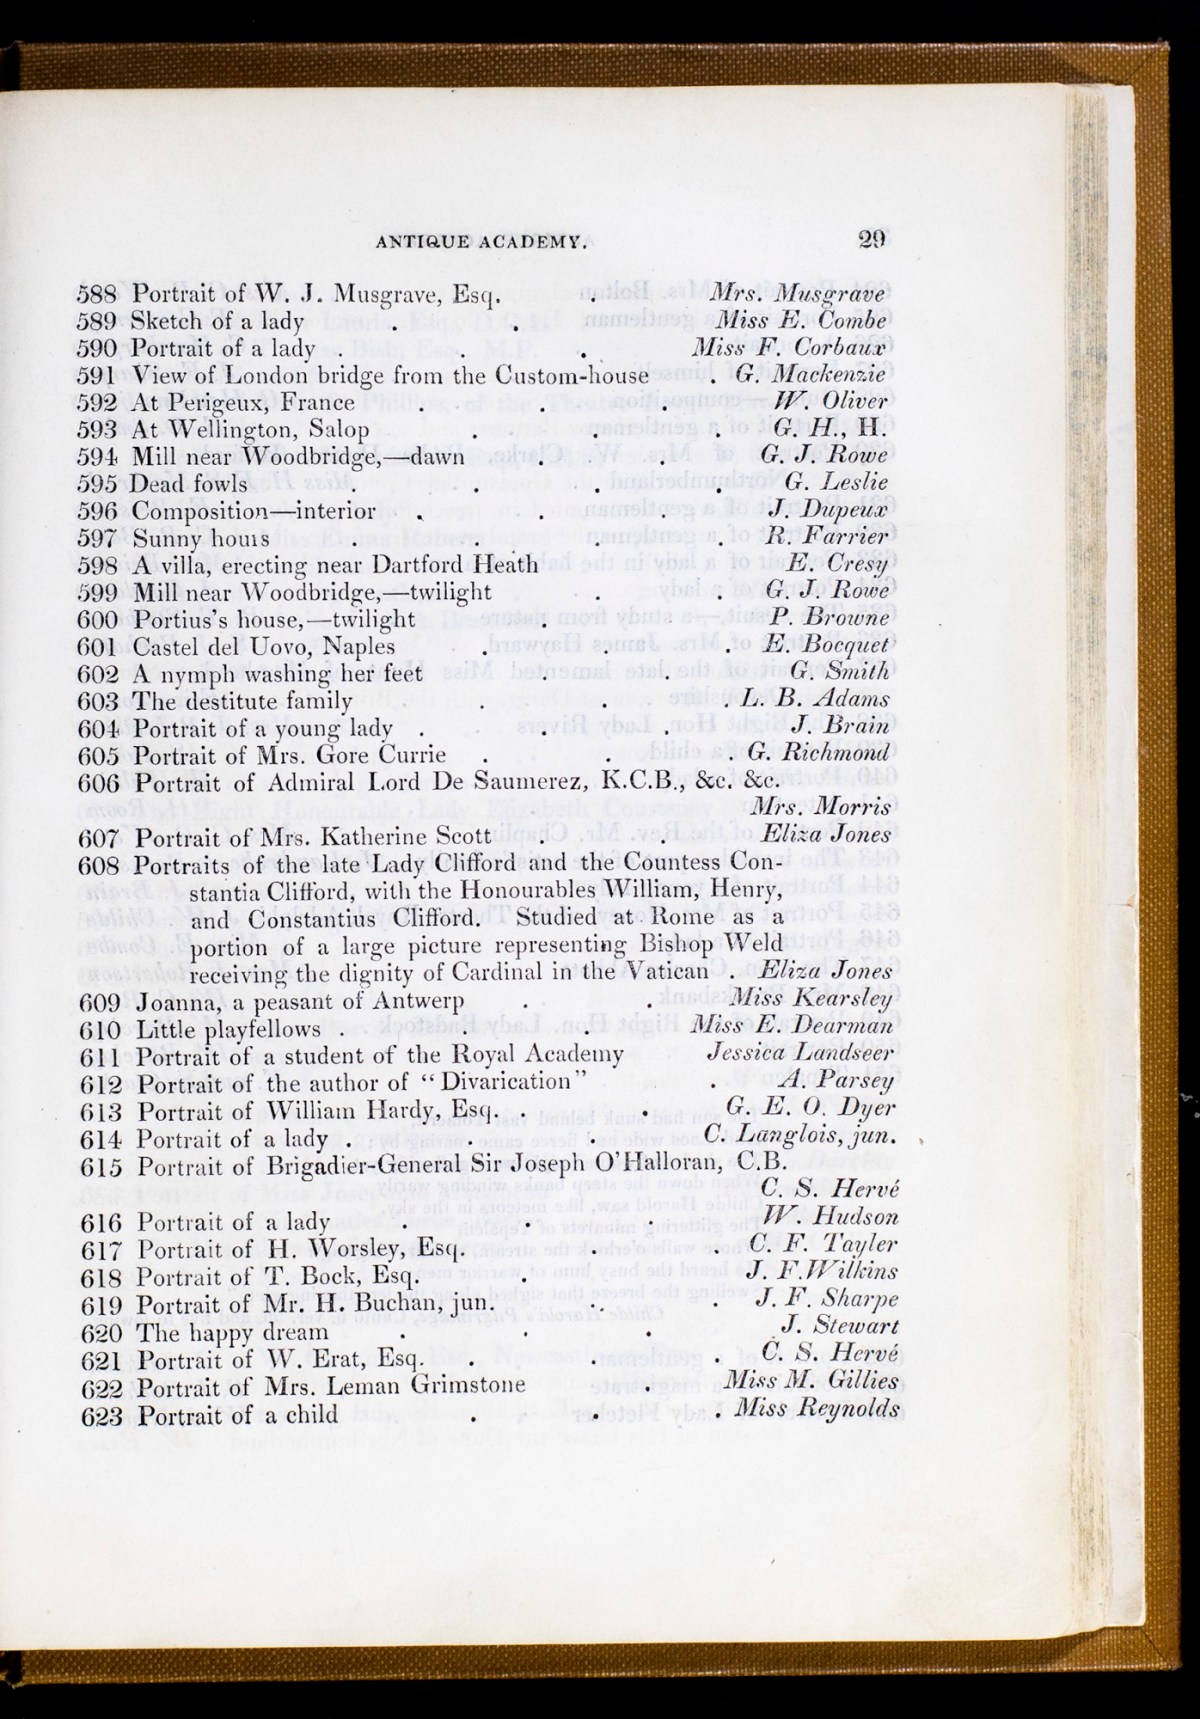 ANTIQUE ACADEMY. 29
588 Portrait of W. J. Musgrave, Esq. . Mrs. Musgrave
589 Sketch of a lady . . Miss E. Combe
590 Portrait of a lady . . . Miss F. Corbaux
591 View of London bridge from the Custom-house . G. Mackenzie
592 At Perigeux, France . . . W. Oliver
593 At Wellington, Salop . . . G. H., H.
594 Mill near Woodbridge,—dawn . . G. J. Rowe
595 Dead fowls . . . . G. Leslie
596 Composition—interior . . . J. Dupeux
597 Sunny hours . . . . R. Farrier
598 A villa, erecting near Dartford Heath . E. Cresy
599 Mill near Woodbridge,—twilight . . G. J. Rowe
600 Portius's house,—twilight . . P. Browne
601 Castel del Uovo, Naples . . . E. Bocquet
602 A nymph washing her feet . . G. Smith
603 The destitute family . . . L. B. Adams
604 Portrait of a young lady . . . J. Brain
605 Portrait of Mrs. Gore Currie . . . G. Richmond
606 Portrait of Admiral Lord De Saumerez, K.C.B., &c. &c.
Mrs. Morris
607 Portrait of Mrs. Katherine Scott . . Eliza Jones
608 Portraits of the late Lady Clifford and the Countess Con-
stantia Clifford, with the Honourables William, Henry,
and Constantius Clifford. Studied at Rome as a
portion of a large picture representing Bishop Weld
receiving the dignity of Cardinal in the Vatican . Eliza Jones
609 Joanna, a peasant of Antwerp . . Miss Kearsley
610 Little playfellows . . . Miss E. Dearman
611 Portrait of a student of the Royal Academy Jessica Landseer
612 Portrait of the author of "Divarication" . A. Parsey
613 Portrait of William Hardy, Esq. . . G. E. O. Dyer
614 Portrait of a lady . . . C. Langlois, jun.
615 Portrait of Brigadier-General Sir Joseph O'Halloran, C.B.
C. S. Hervé
616 Portrait of a lady . . . W. Hudson
617 Portrait of H. Worsley, Esq. . . C. F. Tayler
618 Portrait of T. Bock, Esq. . . J. F. Wilkins
619 Portrait of Mr. H. Buchan, jun. . . J. F. Sharpe
620 The happy dream . . . J. Stewart
621 Portrait of W. Erat, Esq. . . . C. S. Hervé
622 Portrait of Mrs. Leman Grimstone . . Miss M. Gillies
623 Portrait of a child . . . Miss Reynolds